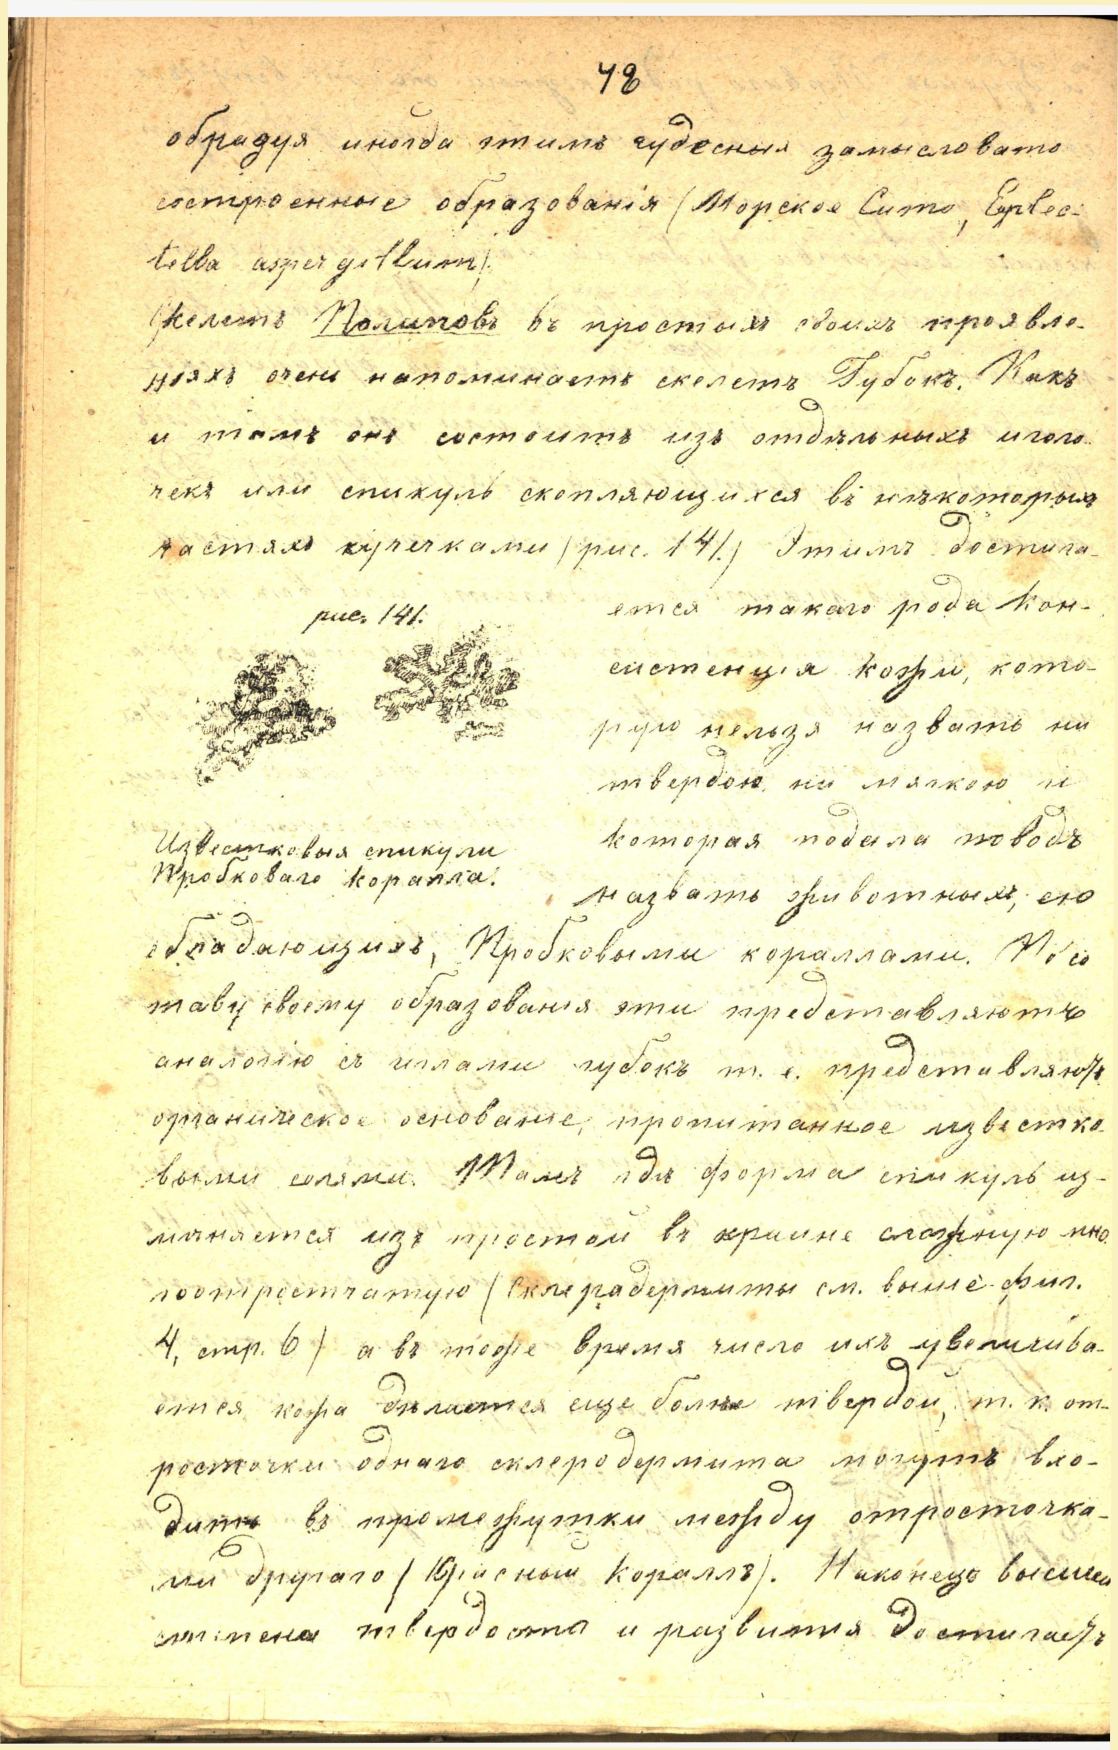 48
образуя иногда этимъ чудесныя замысловато
состроенные образованія (Морское Сито, Euplec-
tella aspergillum).
Скелетъ Полиповъ въ простыхъ своихъ проявле-
ніяхъ очень напоминаетъ скелетъ Губокъ. Какъ
и тамъ онъ состоитъ изъ отдѣльныхъ иголо-
чекъ или спикулъ скопляющихся въ нѣкоторыхъ
частяхъ кучечками (рис. 141.) Этимъ достига-
ется такого рода кон-
систенція кожи, кото-
рую нельзя назвать ни
твердою ни мягкою и
которая подала поводъ
назвать животныхъ, ею
рис. 141.
Известковыя спикули
Пробковаго коралла.
обладающихъ, Пробковыми кораллами. По со
таву своему образованія эти представляютъ
аналогію съ иглами губокъ т. е. представляютъ
органическое основаніе, пропитанное известко-
выми солями. Тамъ гдѣ форма спикулъ из-
мѣняется изъ простой въ крайне сложную мно
гоотростчатую (Склеродермиты см. выше фиг.
4, стр. 6) а въ тоже время число ихъ увеличива-
ется кожа дѣлается еще болѣе твердой, т. к. от-
росточки одного склеродермита могутъ вхо-
дить въ промежутки между отросточка-
ми другаго (Красный Кораллъ). Наконецъ высшей
степени твердости и развитія достигаетъ